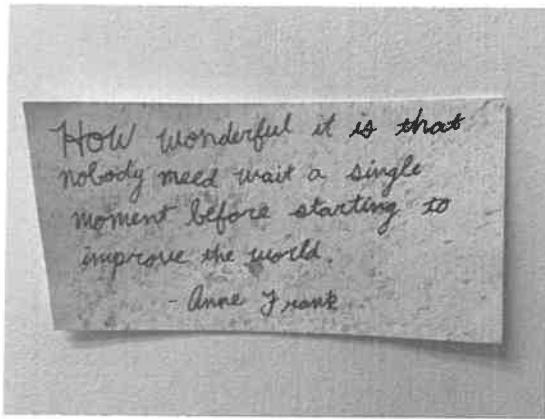 How wonderful it is that
nobody need wait a single
moment before starting to
improve the world.
- Anne Frank